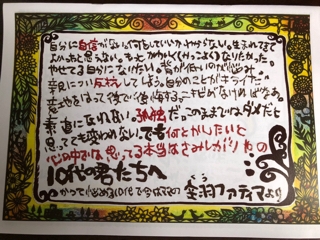 自分に自信がない。何をしていいか、わからない。生まれてきて
よかったと思えない。もっとかわいく、かっこよくなりたかった。
やせてる自分になりたい。背が低いのが悩みだ。
親について反抗してしまう。自分のことがキライだ
意地をはって後で後悔する。ニキビがなければなあ。
素直になれない。孤独だ。このままではダメだと
思っても変われない。でも何とかしたいと
心の中では思ってる本当はさみしがりやの
10代の君たちへ
かつて悩める10代で今はママの ファティマより